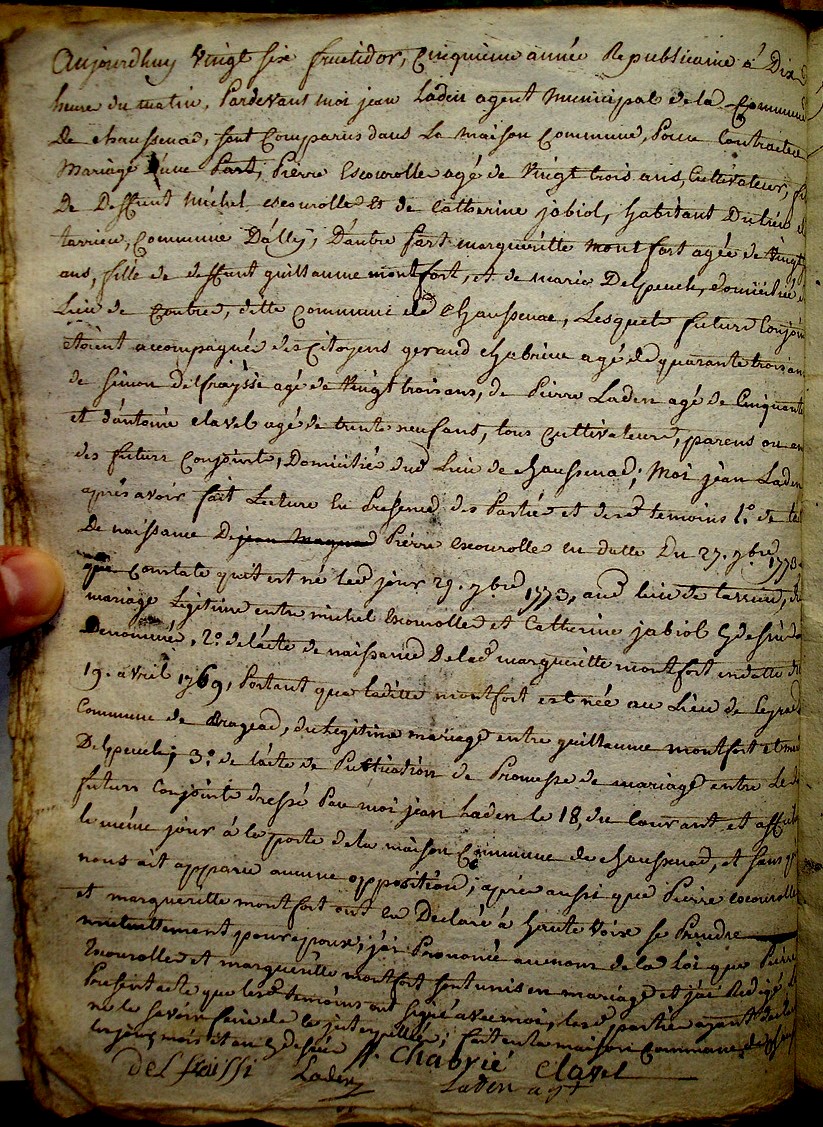 Aujourdhuy vingt six fructidor, Cinquieme année Republicaine á Dix
heure du matin, Pardevant moi jean Laden agent Municipal de la Commune
De chaussenac, sont Comparus dans La maison Commune, Pour Contracter
Mariage D'une Part, Pierre Escourolle agé de Vingt trois ans, Cultivateur,
De Deffunt Michel escourolle Et de Catherine jabiol, habitant Du lieu
tarrieu, Commune D'ally, D'autre Part marguerille montfort agée de vingt
ans, fille de deffunt guillaume montfort, et de marie Delpeuch, domiciliée
Lieu de Contre, ditte Commune de Chaussenac, Lesquels futurs Conjoin
étoient accompagnés des Citoyens geraud Chabrieu agé de quarante trois an
de Simon delfraÿssi agé de Vingt trois ans, de Pierre Laden agé de Cinquante
et d'antoine clavel agé de trente neuf ans, tous Cultivateurs, parens ou
des futurs Conjoints, Domiciliés dud Lieu de Chaussenac; Moi jean Laden
aprés avoir fait Lecture En Presence des Parties et desd temoins 1.º de
De naissance De jean Pierre escourolle en datte Du 27. 7bre 1773.
que Constate qu'il est né led jour 29. 7bre 1773, aud lieu de tarrieu,
mariage Legitime entre michel Escourolle et Catherine jabiol
Denommé, 2.º de l'acte de naissance De lad marguerille montfort en datte du
19. avril 1769, Portant que laditte montfort est née au Lieu de
Commune de Brageac, du legitime mariage entre guillaume montfort et
Delpeuch; 3.º de l'acte de Publication de Promesse de mariage entre Les
futurs Conjoints dressé Par moi jean Laden le 18, du Courant et affiché
le même jour á la porte de la maison Commune de chaussenac, et sans q
nous ait apparu aucune opposition; aprés aussi que Pierre escourolle
et marguerille montfort ont eu Declaré á haute voix se Prendre
mutuellement pour epoux; j'ai Prononcé au nom de la loi que Pierre
Escourolle et marguerille montfort sont unis en mariage et j'ai Redigé
Present acte que lesd temoins ont signé avec moi, lesd parties ayant declaré
ne le savoir faire de ce interpellées; fait en la maison Commune de
les jour, mois et an
delfraissi Laden Chabrié Clavel
Laden agt